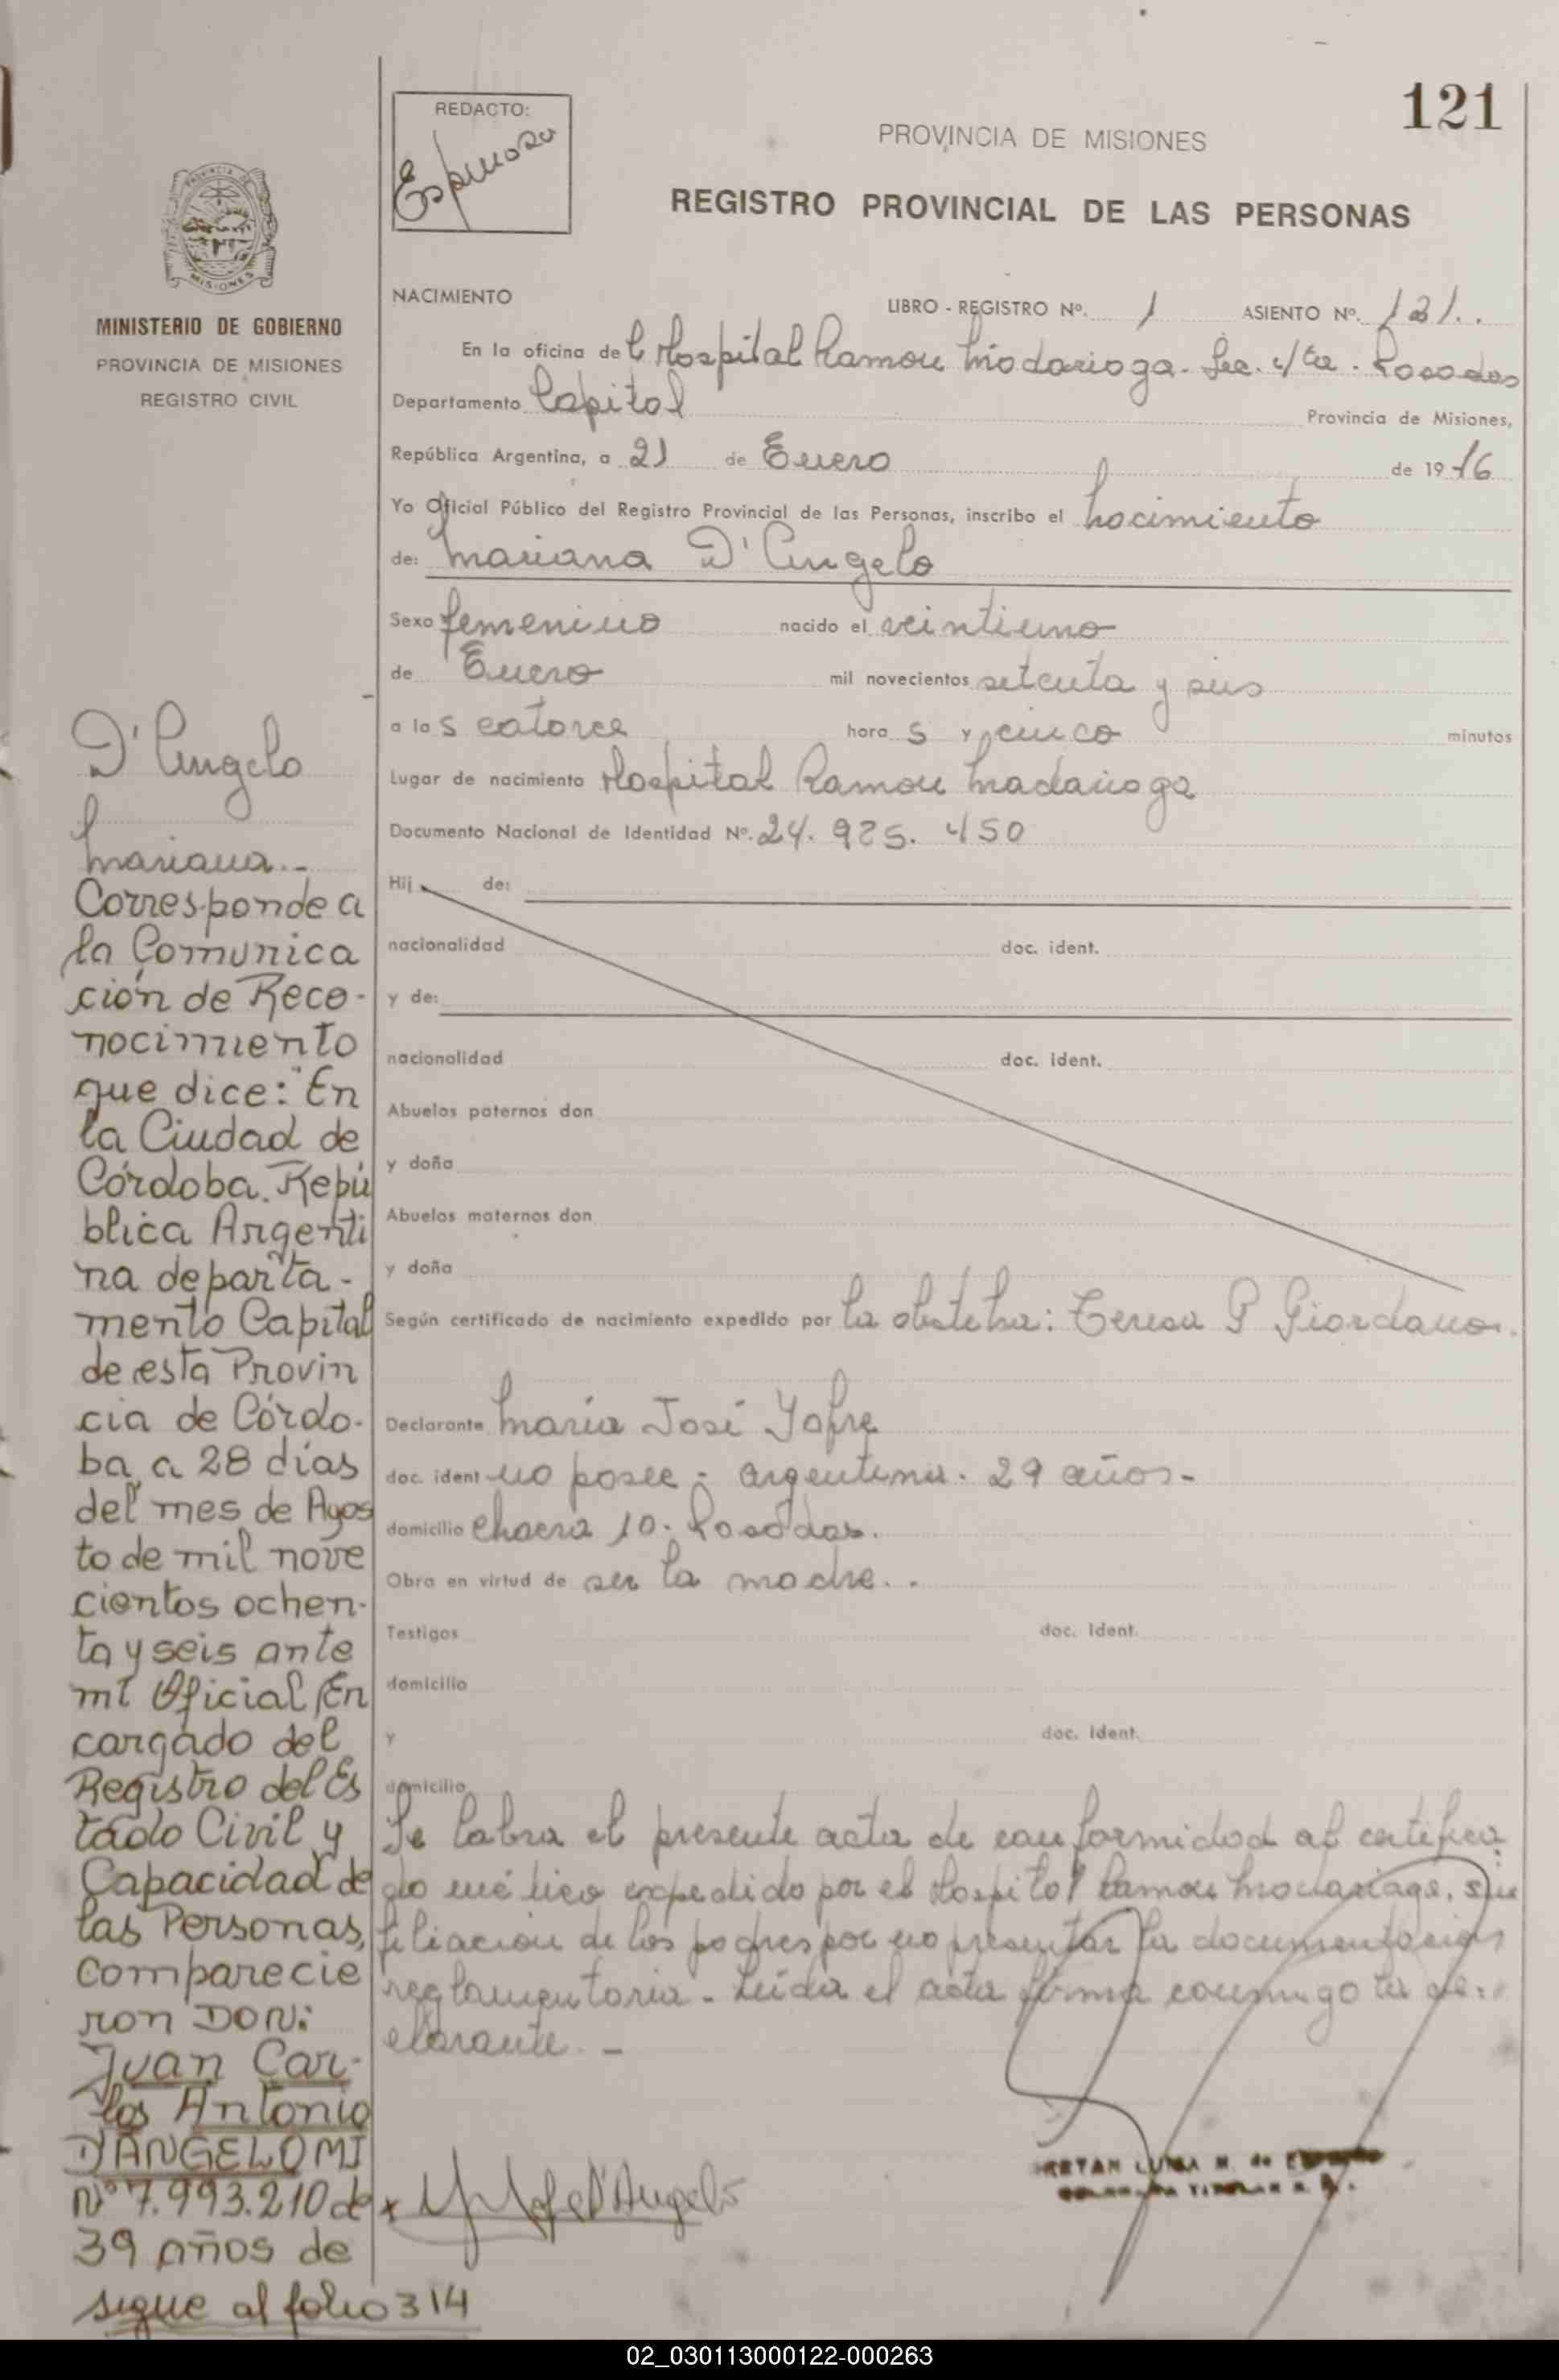 121
REDACTO:
Espinoza
PROVINCIA DE MISIONES
REGISTRO PROVINCIAL DE LAS PERSONAS
MISIONES
MINISTERIO DE GOBIERNO
PROVINCIA DE MISIONES
REGISTRO CIVIL
NACIMIENTO LIBRO - REGISTRO Nº. 1 ASIENTO Nº. 121..
En la oficina de Hospital Ramon Madariaga. Sec. 4/ta. Posadas
Departamento Capital Provincia de Misiones,
República Argentina, a 21 de Enero de 1976
Yo Oficial Público del Registro Provincial de las Personas, inscribo el nacimiento
de: Mariana D'Angelo
Sexo femenino nacido el veintiuno
de Enero mil novecientos setenta y seis
a las catorce horas y cinco minutos
Lugar de nacimiento Hospital Ramon Madariaga
Documento Nacional de Identidad Nº. 24. 925. 450
Hij de:
nacionalidad doc. ident.
y de:
nacionalidad doc. ident.
Abuelos paternos don
y doña
Abuelos maternos don
y doña
Según certificado de nacimiento expedido por la obstetra: Teresa P Giordano.
Declarante María José Yofre
doc. ident no posee - argentina. 29 años-
domicilio Chacra 10. Posadas.
Obra en virtud de ser la madre..
Testigos doc. ident.
domicilio
y doc. ident.
domicilio
Se labra el presente acta de conformidad al certifica
do médico expedido por el Hospital Ramon Madariaga, sin
filiacion de los padres por no presentar la documentacion
reglamentaria. Leida el acta firma conmigo la de-
clarante. -
x Yofre D'Angelo
LUISA M. de
D'Angelo
Mariana.-
Corresponde a
la Comunica
ción de Reco-
nocimiento
que dice: "En
la Ciudad de
Córdoba. Repú
blica Argenti
na departa-
mento Capital
de esta Provin
cia de Córdo-
ba, a 28 días
del mes de Agos
to de mil nove
cientos ochen-
ta y seis ante
mí Oficial En
cargado del
Registro del Es
tado Civil y
Capacidad de
las Personas,
Comparecie
ron DON:
Juan Car-
los Antonio
D'ANGELO MI
Nº 7.993.210 de
39 años de
sigue al folio 314
02_030113000122-000263